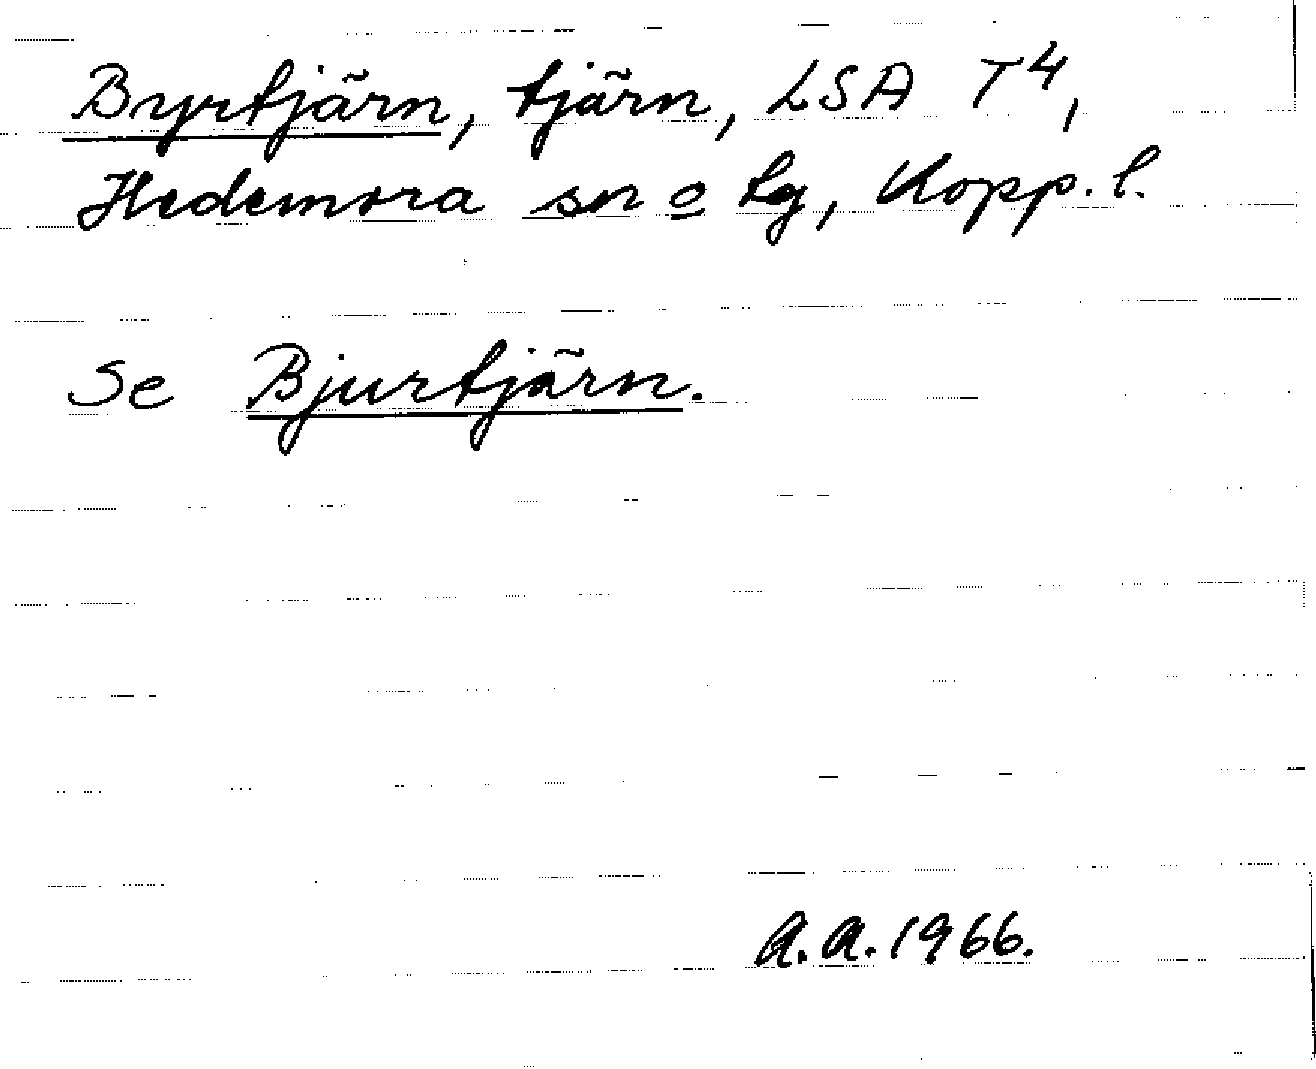 Byrtjärn, tjärn, LSA T4,
Hedemora sn o tg, Kopp. l.
Se Bjurtjärn.
A.A. 1966.